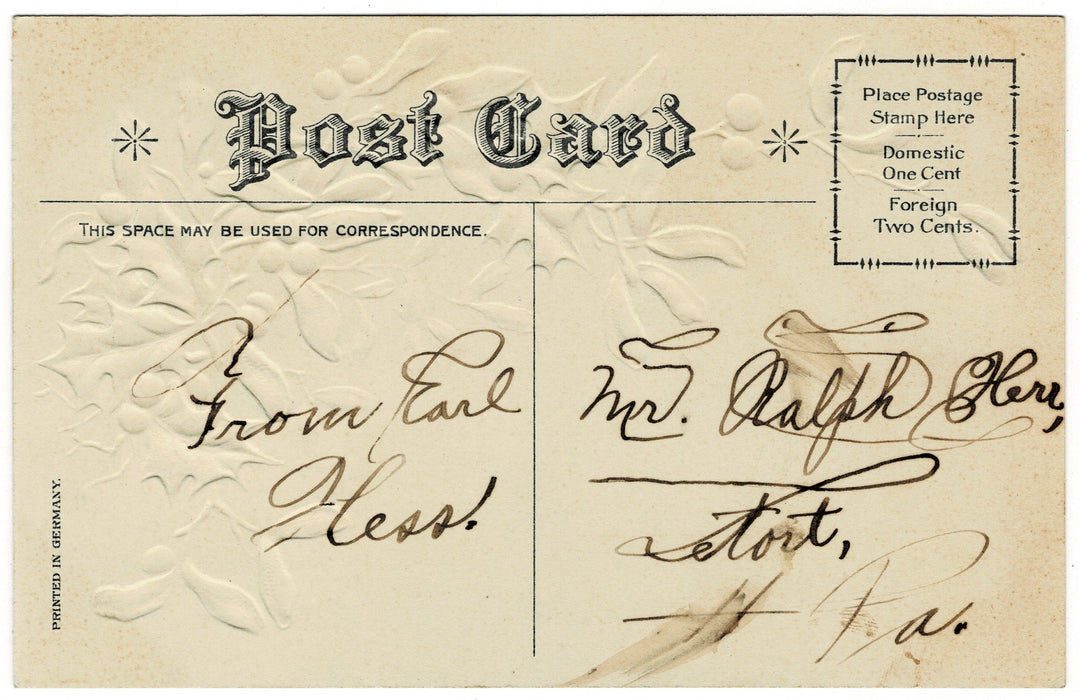 Post Card
Place Postage
Stamp Here
Domestic
One Cent
Foreign
Two Cents.
THIS SPACE MAY BE USED FOR CORRESPONDENCE.
From Earl
Hess.
Mr. Ralph Herr,
Letort,
Pa.
PRINTED IN GERMANY.